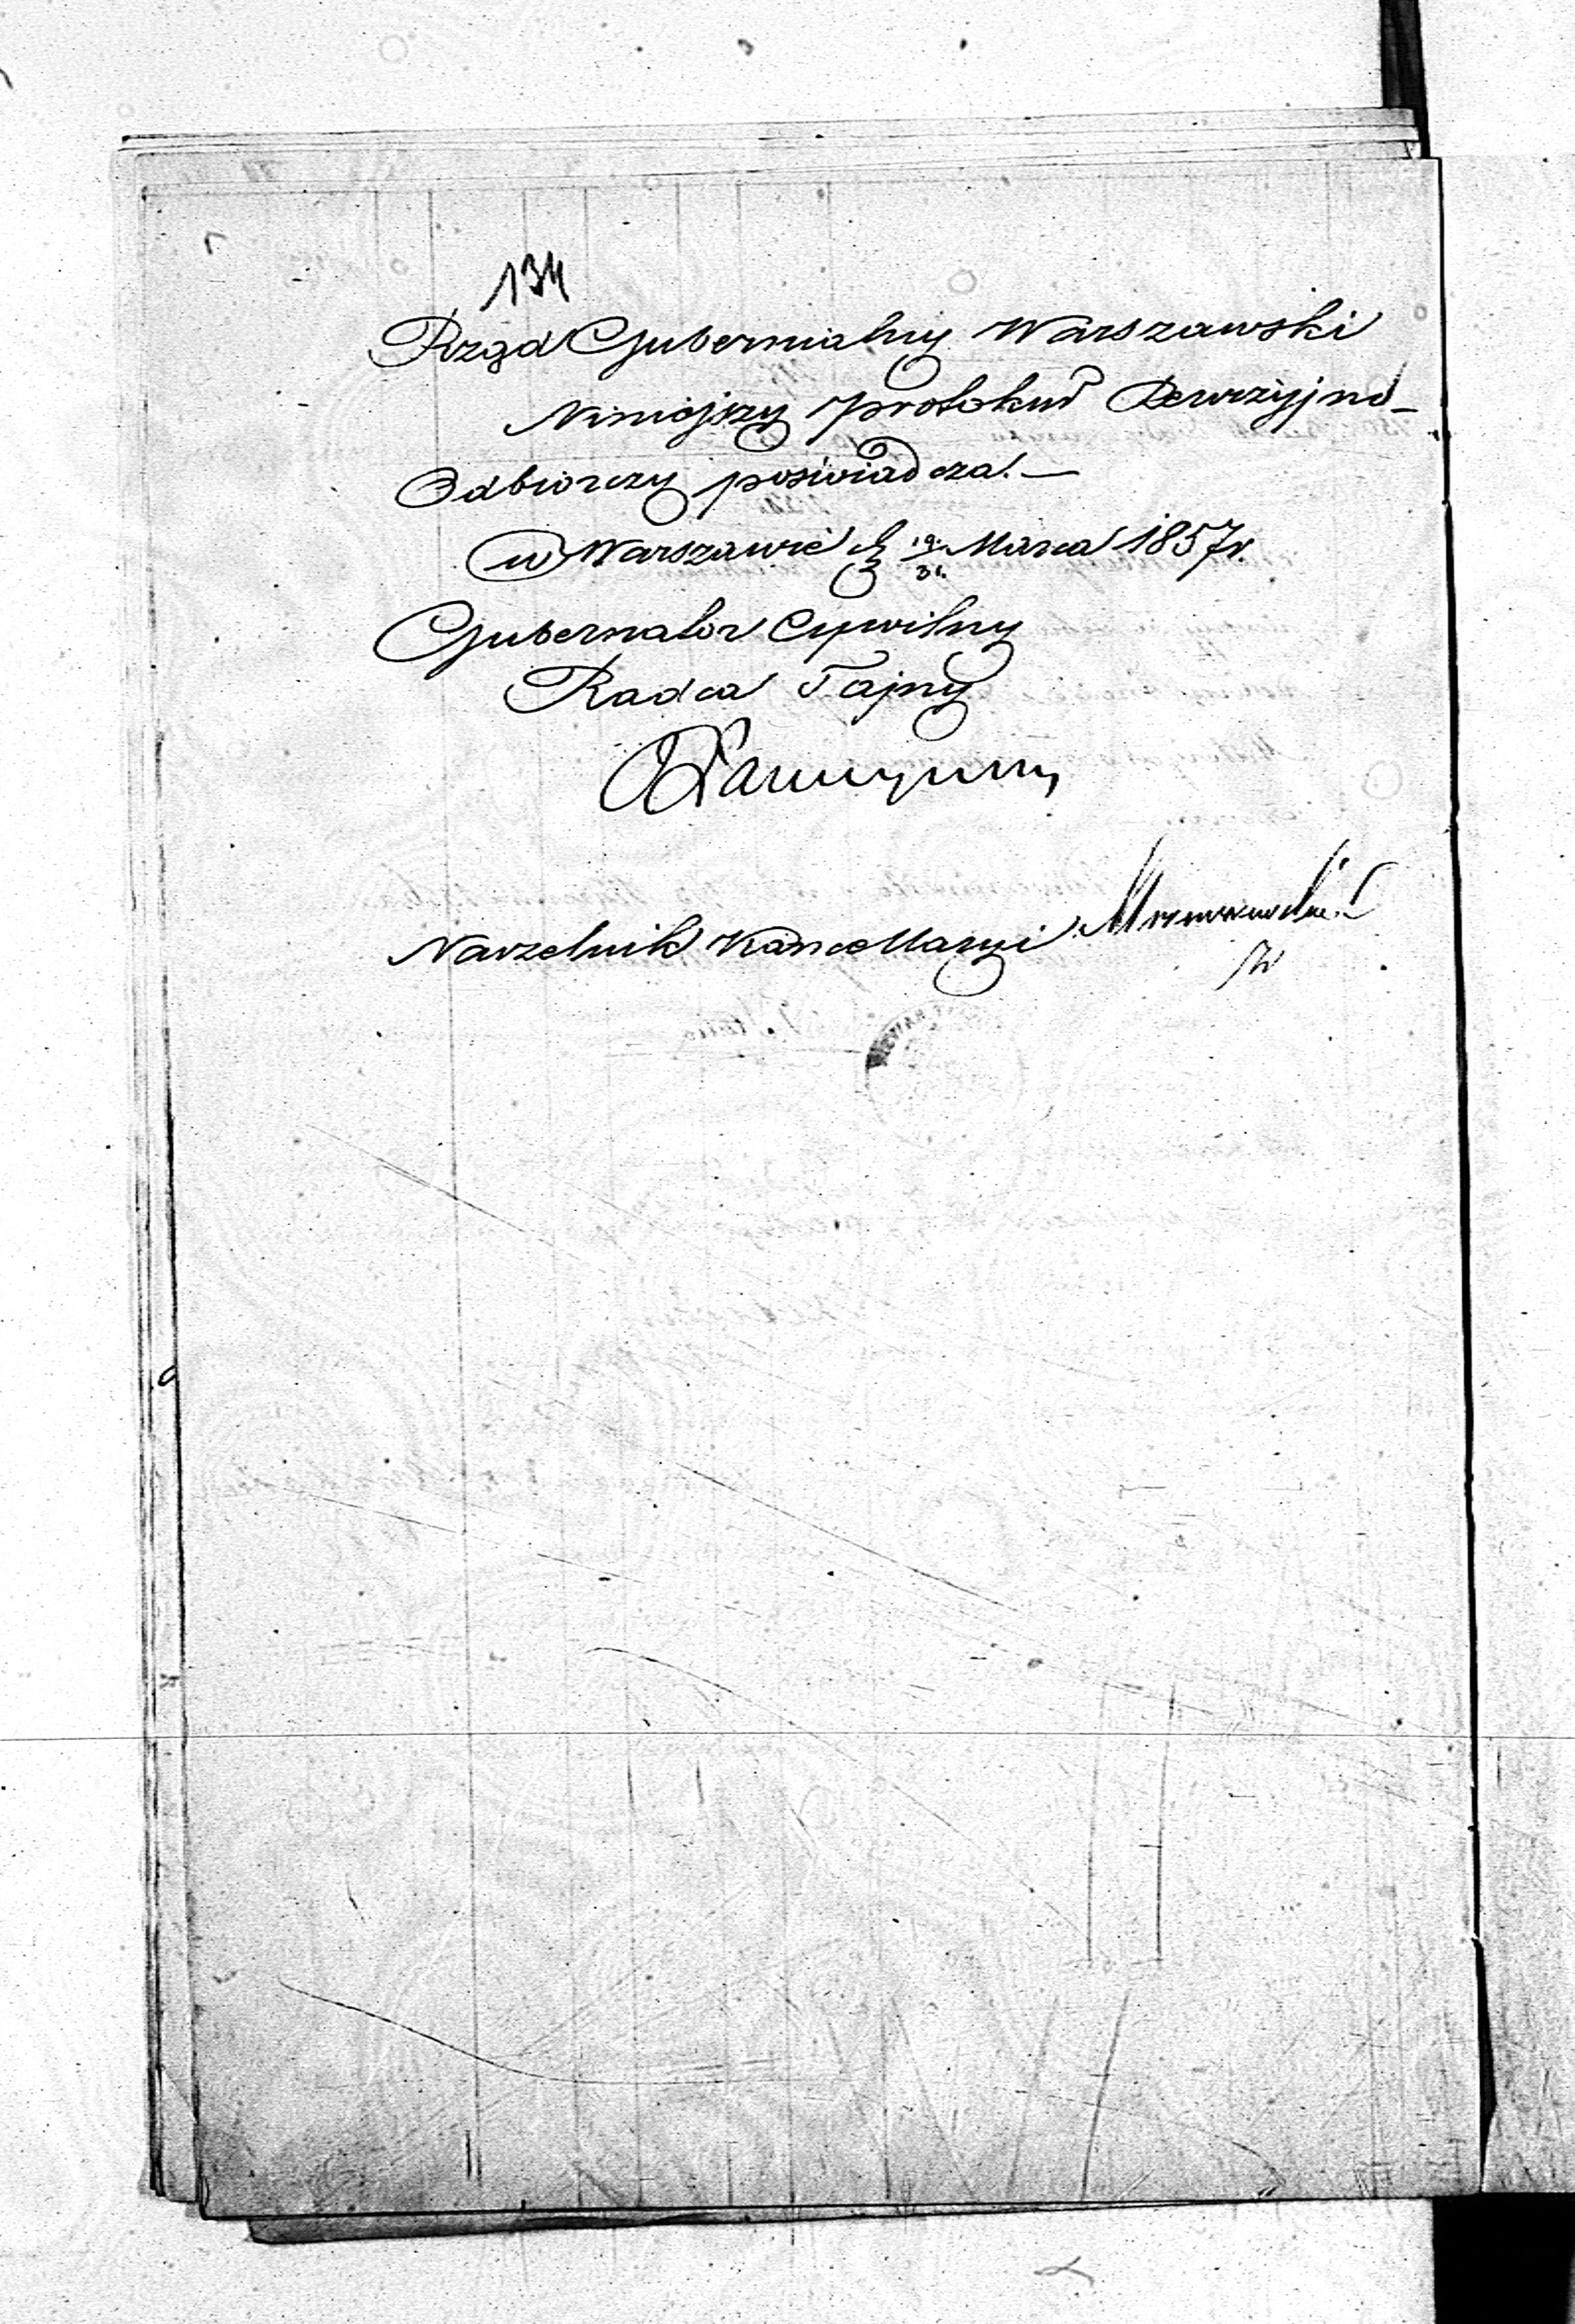 134
Rząd Gubernialny Warszawski
Niniejszy protokuł Rewizyjno-
Odbiorczy poświadcza. —
w Warszawie d. 19/31. Marca 1857 r.
Gubernator Cywilny
Radca Tajny
Naczelnik Kancellaryi